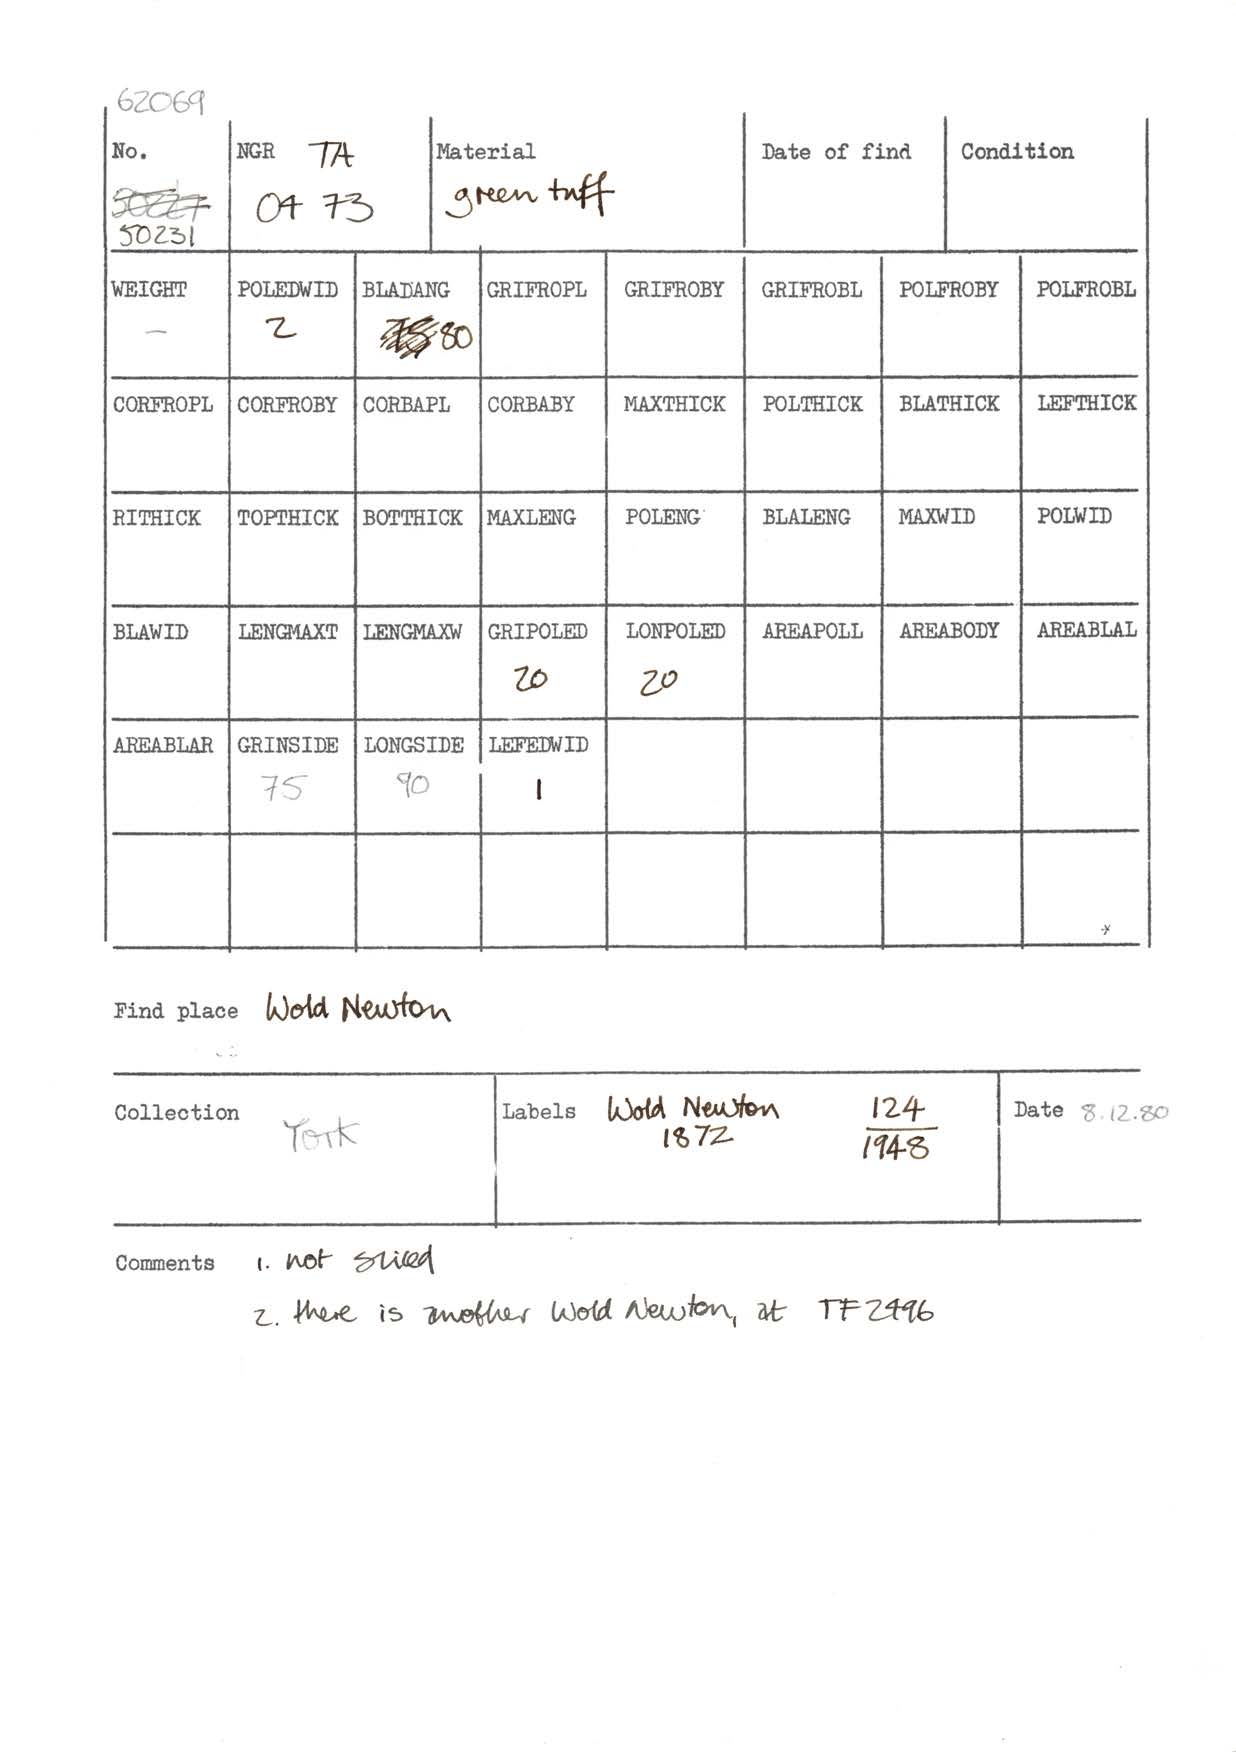 62069
No. NGR TA Material Date of find Condition
50227 04 73 green tuff
50231
WEIGHT POLEDWID BLADANG GRIFROPL GRIFROBY GRIFROBL POLFROBY POLFROBL
— 2 80
CORFROPL CORFROBY CORBAPL CORBABY MAXTHICK POLTHICK BLATHICK LEFTHICK
RITHICK TOPTHICK BOTTHICK MAXLENG POLENG BLALENG MAXWID POLWID
BLAWID LENGMAXT LENGMAXW GRIPOLED LONPOLED AREAPOLL AREABODY AREABLAL
20 20
AREABLAR GRINSIDE LONGSIDE LEFEDWID
75 90 1
Find place Wold Newton
Collection York Labels Wold Newton 124 Date 8.12.80
1872 1948
Comments 1. not sliced
2. there is another Wold Newton, at TF2496